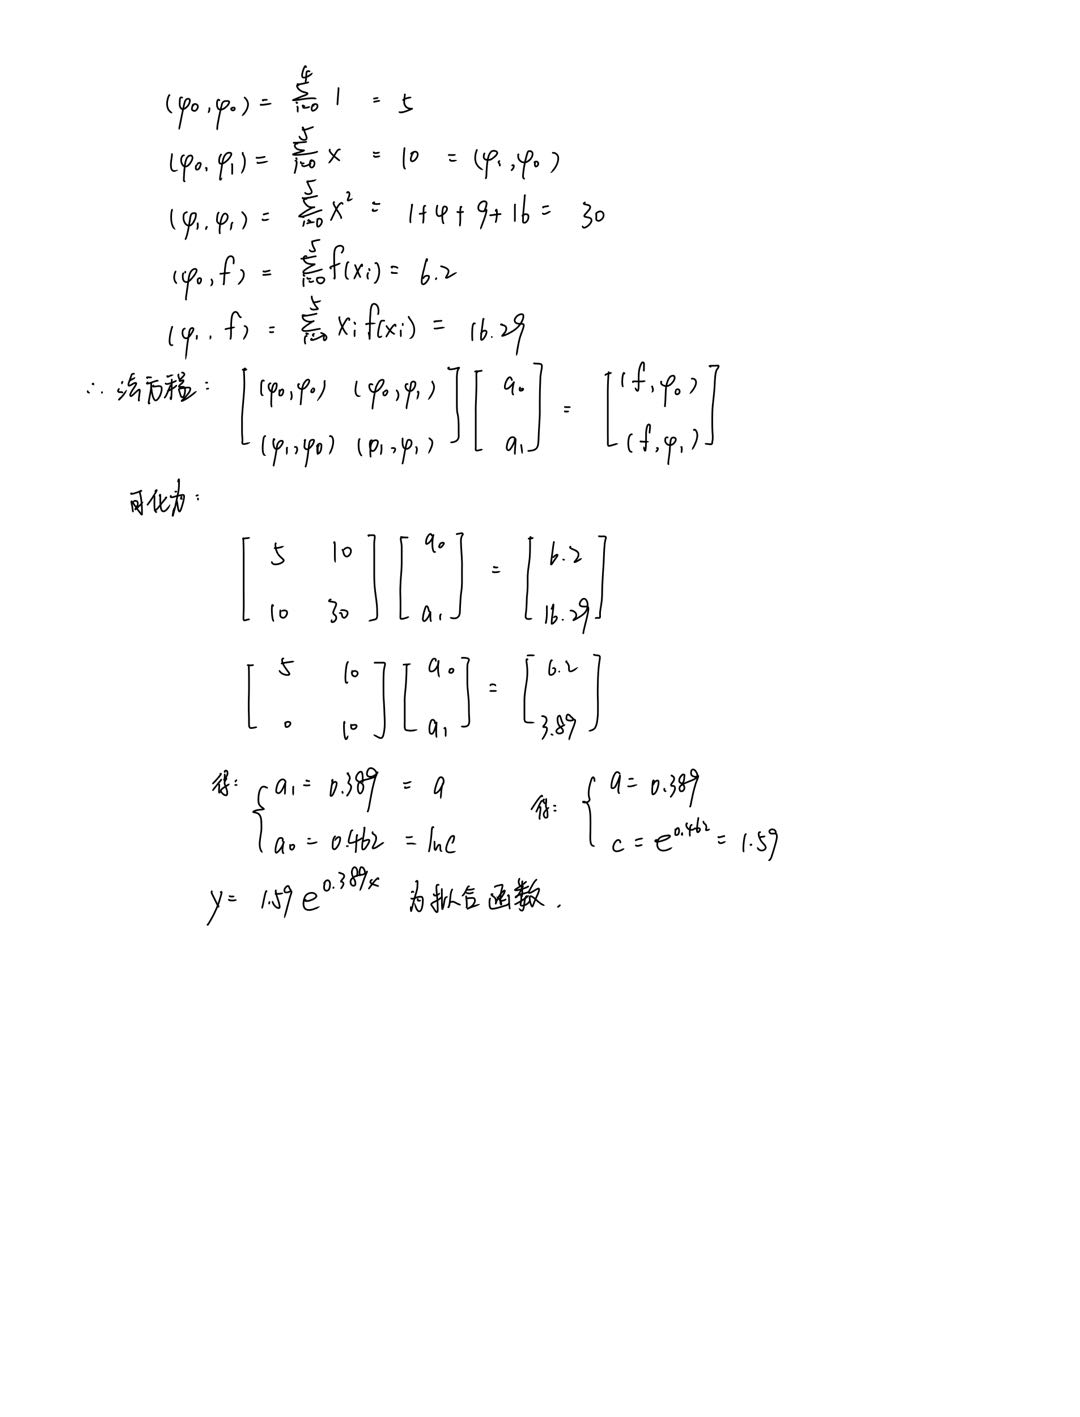 (φ₀,φ₀) = ∑_{i=0}^{4} 1 = 5
(φ₀,φ₁) = ∑_{i=0}^{5} x = 10 = (φ₁,φ₀)
(φ₁,φ₁) = ∑_{i=0}^{5} x² = 1+4+9+16 = 30
(φ₀,f) = ∑_{i=0}^{5} f(xᵢ) = 6.2
(φ₁,f) = ∑_{i=0}^{5} xᵢf(xᵢ) = 16.29
∴ 法方程: [(φ₀,φ₀) (φ₀,φ₁); (φ₁,φ₀) (φ₁,φ₁)] [a₀; a₁] = [(f,φ₀); (f,φ₁)]
可化为:
[5 10; 10 30] [a₀; a₁] = [6.2; 16.29]
[5 10; 0 10] [a₀; a₁] = [6.2; 3.89]
得: { a₁ = 0.389 = a 得: { a = 0.389
a₀ = 0.462 = lnc c = e^{0.462} = 1.59
y = 1.59 e^{0.389x} 为拟合函数.